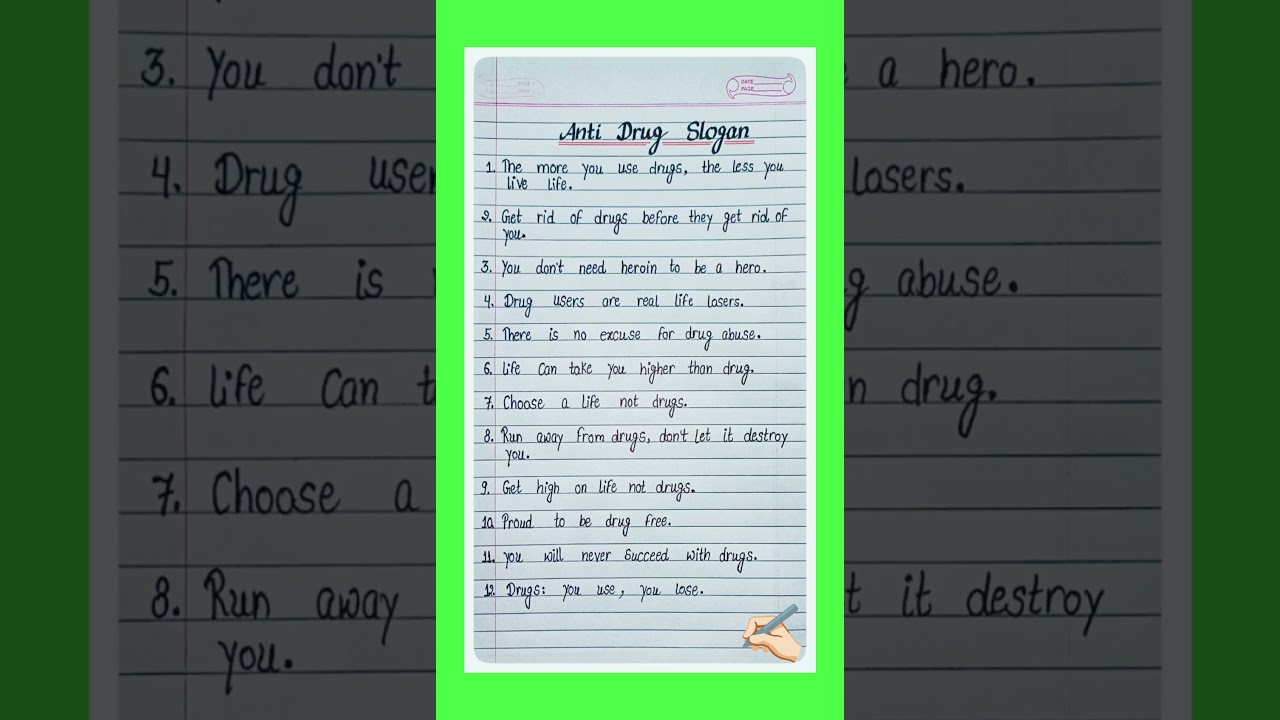 DATE
PAGE
Anti Drug Slogan
1. The more you use drugs, the less you
live life.
2. Get rid of drugs before they get rid of
you.
3. You don't need heroin to be a hero.
4. Drug users are real life losers.
5. There is no excuse for drug abuse.
6. Life Can take you higher than drug.
7. Choose a life not drugs.
8. Run away from drugs, don't let it destroy
you.
9. Get high on life not drugs.
10. Proud to be drug free.
11. you will never Succeed with drugs.
12. Drugs: you use, you lose.
3. You don't
a hero.
4. Drug user
losers.
5. There is
g abuse.
6. Life Can t
n drug.
7. Choose a
8. Run away
t it destroy
you.